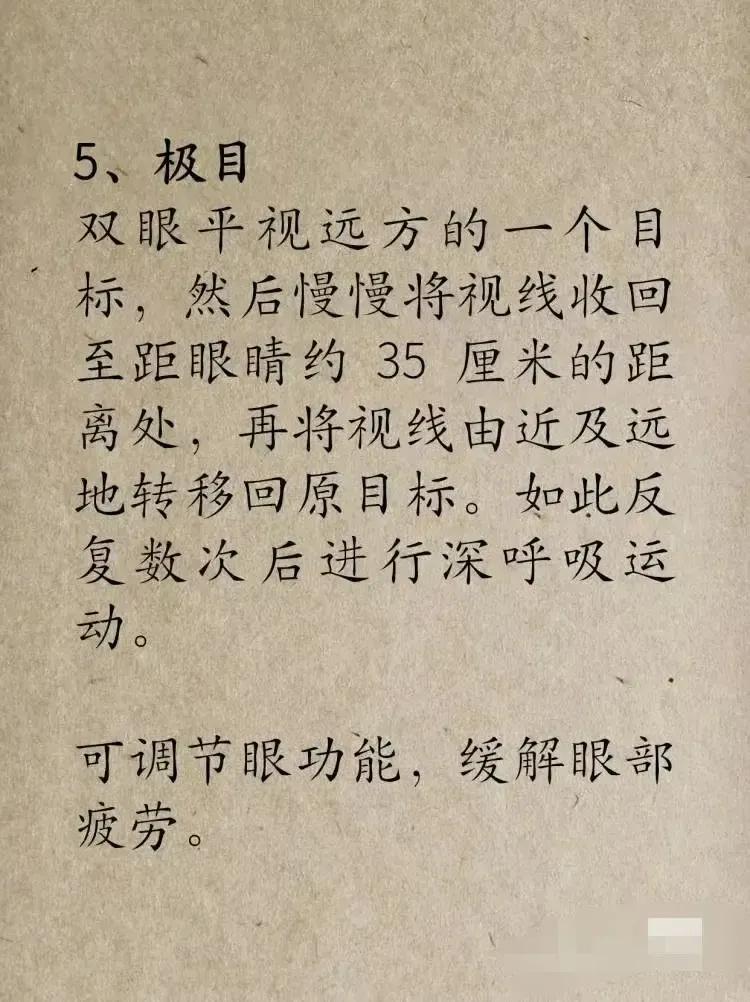 5、极目
双眼平视远方的一个目
标，然后慢慢将视线收回
至距眼睛约 35 厘米的距
离处，再将视线由近及远
地转移回原目标。如此反
复数次后进行深呼吸运
动。
可调节眼功能，缓解眼部
疲劳。